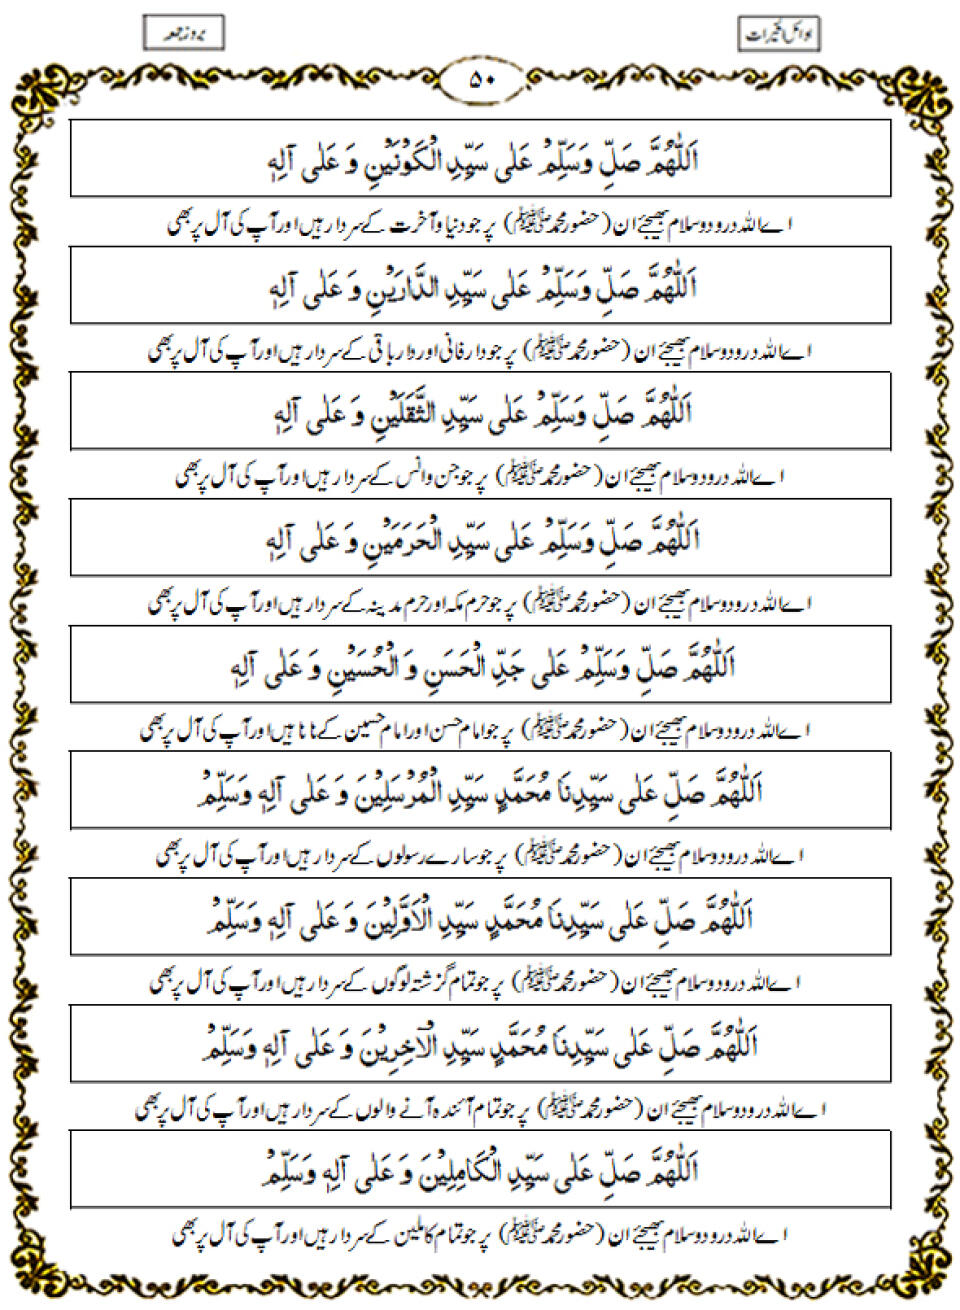 اوائل الخیرات
بروز جمعہ
۵۰
اَللّٰهُمَّ صَلِّ وَسَلِّمْ عَلٰی سَیِّدِ الْکَوْنَیْنِ وَ عَلٰی آلِهٖ
اے اللہ درود وسلام بھیجئے ان (حضور محمد ﷺ) پر جو دنیا و آخرت کے سردار ہیں اور آپ کی آل پر بھی
اَللّٰهُمَّ صَلِّ وَسَلِّمْ عَلٰی سَیِّدِ الدَّارَیْنِ وَ عَلٰی آلِهٖ
اے اللہ درود وسلام بھیجئے ان (حضور محمد ﷺ) پر جو دار فانی اور دار باقی کے سردار ہیں اور آپ کی آل پر بھی
اَللّٰهُمَّ صَلِّ وَسَلِّمْ عَلٰی سَیِّدِ الثَّقَلَیْنِ وَ عَلٰی آلِهٖ
اے اللہ درود وسلام بھیجئے ان (حضور محمد ﷺ) پر جو جن وانس کے سردار ہیں اور آپ کی آل پر بھی
اَللّٰهُمَّ صَلِّ وَسَلِّمْ عَلٰی سَیِّدِ الْحَرَمَیْنِ وَ عَلٰی آلِهٖ
اے اللہ درود وسلام بھیجئے ان (حضور محمد ﷺ) پر جو حرم مکہ اور حرم مدینہ کے سردار ہیں اور آپ کی آل پر بھی
اَللّٰهُمَّ صَلِّ وَسَلِّمْ عَلٰی جَدِّ الْحَسَنِ وَ الْحُسَیْنِ وَ عَلٰی آلِهٖ
اے اللہ درود وسلام بھیجئے ان (حضور محمد ﷺ) پر جو امام حسن اور امام حسین کے نانا ہیں اور آپ کی آل پر بھی
اَللّٰهُمَّ صَلِّ عَلٰی سَیِّدِنَا مُحَمَّدٍ سَیِّدِ الْمُرْسَلِیْنَ وَ عَلٰی آلِهٖ وَسَلِّمْ
اے اللہ درود وسلام بھیجئے ان (حضور محمد ﷺ) پر جو سارے رسولوں کے سردار ہیں اور آپ کی آل پر بھی
اَللّٰهُمَّ صَلِّ عَلٰی سَیِّدِنَا مُحَمَّدٍ سَیِّدِ الْاَوَّلِیْنَ وَ عَلٰی آلِهٖ وَسَلِّمْ
اے اللہ درود وسلام بھیجئے ان (حضور محمد ﷺ) پر جو تمام گزشتہ لوگوں کے سردار ہیں اور آپ کی آل پر بھی
اَللّٰهُمَّ صَلِّ عَلٰی سَیِّدِنَا مُحَمَّدٍ سَیِّدِ الْآخِرِیْنَ وَ عَلٰی آلِهٖ وَسَلِّمْ
اے اللہ درود وسلام بھیجئے ان (حضور محمد ﷺ) پر جو تمام آئندہ آنے والوں کے سردار ہیں اور آپ کی آل پر بھی
اَللّٰهُمَّ صَلِّ عَلٰی سَیِّدِ الْکَامِلِیْنَ وَ عَلٰی آلِهٖ وَسَلِّمْ
اے اللہ درود وسلام بھیجئے ان (حضور محمد ﷺ) پر جو تمام کاملین کے سردار ہیں اور آپ کی آل پر بھی